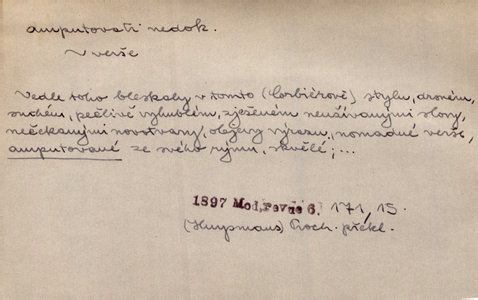 amputovati nedok.
v verše
Vedle toho bleskaly v tomto (Corbièrově) stylu, drsném,
suchém, pečlivě vyhublém, zježeném neužívanými slovy,
nečekanými novotvary, objevy výrazu, nomadné verše,
amputované ze svého rýmu, skvělé; ...
1897 Mod. Revue 6. 171, 15.
(Huysmans) Proch. překl.